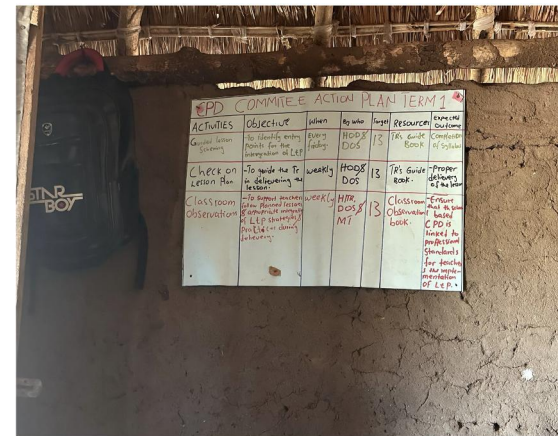 CPD COMMITEE ACTION PLAN TERM 1
ACTIVITIES
Objective
When
By Who
Target
Resources
Expected
Outcome
Guided lesson
-To identify entry
points for the
integration of LtP
Every
Friday.
HOD&
DOS
13
TR's Guide
BOOK
Completion
of Syllabus
Check on
Lesson Plan
-To guide the Tr
in delievering the
lesson.
weekly
HOD&
DOS
13
TR's Guide
BOOK.
-Proper
delivery
of the lesson
Classroom
Observation
-To support teachers
when planned lessons
& appropriate
of LtP strategies &
during
delivery.
weekly
HTR,
DOS &
MT
13
Classroom
Observation
book.
-Ensure
that
based
CPD is
linked to
proffessional
Standards
for teachers
& the imple-
mentation
of LtP.
STAR
BOY